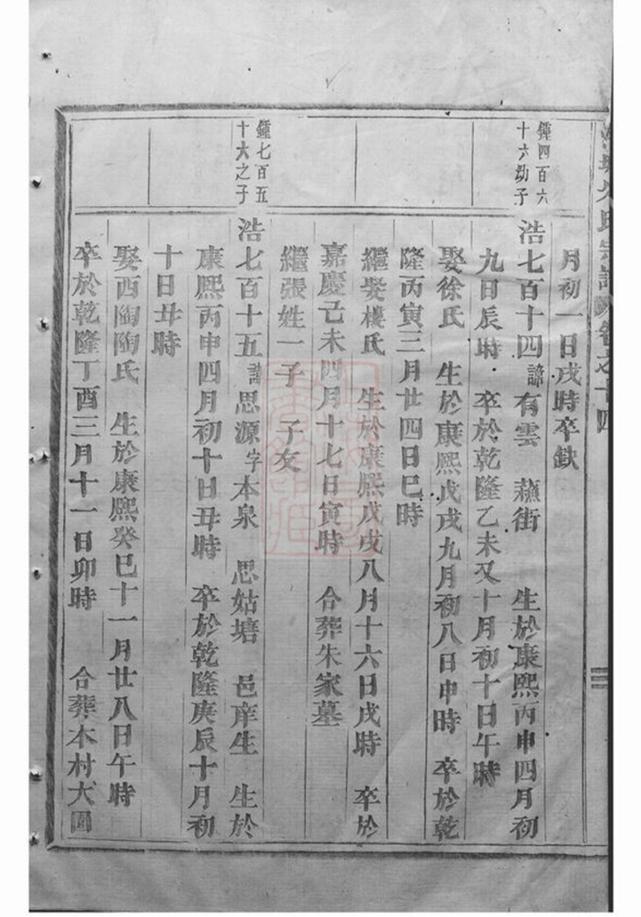 氏宗譜 卷之十四
月初一日戌時卒缺
鍾四百六
十六幼子
浩七百十四 諱有雲 蘸街 生於康熙丙申四月初
九日辰時 卒於乾隆乙未又十月初十日午時
娶徐氏 生於康熙戊戌九月初八日申時 卒於乾
隆丙寅三月廿四日巳時
繼娶樓氏 生於康熙戊戌八月十六日戌時 卒於
嘉慶己未四月十七日寅時 合葬朱家墓
繼張姓一子 子友
鍾七百五
十六之子
浩七百十五 諱思源 字本泉 思姑塘 邑庠生 生於
康熙丙申四月初十日丑時 卒於乾隆庚辰十月初
十日丑時
娶西陶陶氏 生於康熙癸巳十一月廿八日午時
卒於乾隆丁酉三月十一日卯時 合葬木村大園